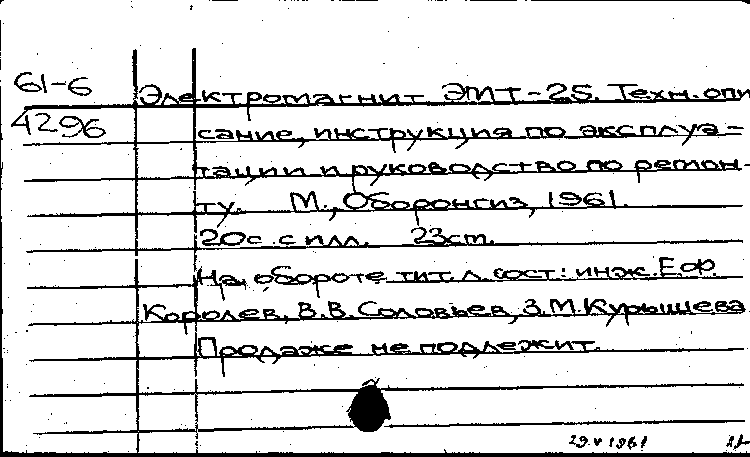 61-6 Электромагнит ЭМТ-25. Техн. опи
4296 сание, инструкция по эксплуа-
тации и руководство по ремон-
ту. М., Оборонгиз, 1961.
20с. с илл. 23см.
На обороте тит. л. сост.: инж. Е.Ф.
Королев, В.В. Соловьев, З.М. Курышева
Продаже не подлежит.
29.V 1961